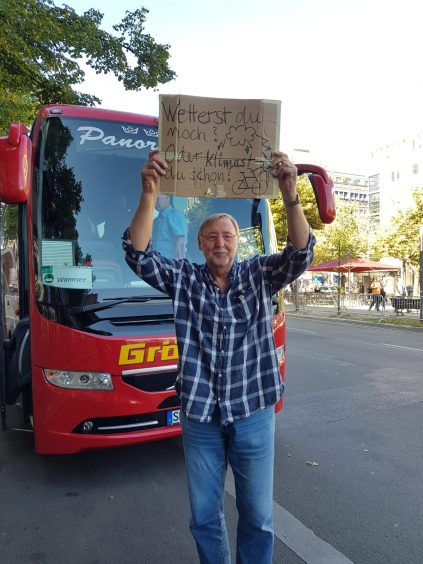 Wetterst du
noch?
Oder klimast
du schon?
Panor
Wannsee
Grö
S